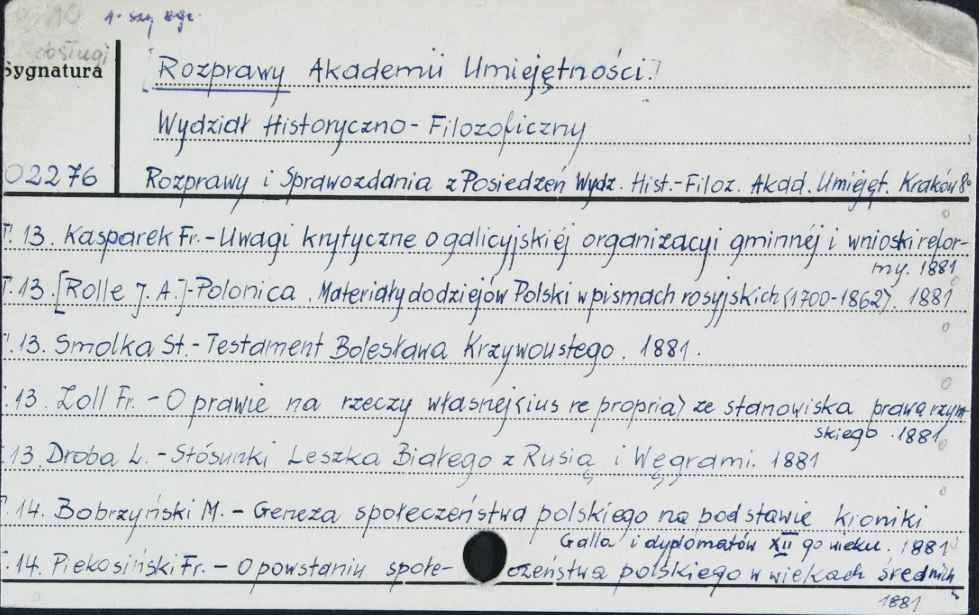 1-szy egz.
Sygnatura
[Rozprawy Akademii Umiejętności.]
Wydział Historyczno-Filozoficzny
02276
Rozprawy i Sprawozdania z Posiedzeń Wydz. Hist.-Filoz. Akad. Umiejęt. Kraków 8o
T. 13. Kasparek Fr. - Uwagi krytyczne o galicyjskiéj organizacyi gminnéj i wnioski refor-
my. 1881
T. 13. [Rolle J. A.] - Polonica. Materiały do dziejów Polski w pismach rosyjskich (1700-1862). 1881
T. 13. Smolka St. - Testament Bolesława Krzywoustego. 1881.
T. 13. Zoll Fr. - O prawie na rzeczy własnej (ius re propria) ze stanowiska prawa rzym-
skiego. 1881
T. 13. Droba L. - Stósunki Leszka Białego z Rusią i Węgrami. 1881
T. 14. Bobrzyński M. - Geneza społeczeństwa polskiego na podstawie kroniki
Galla i dyplomatów XII go wieku. 1881
T. 14. Piekosiński Fr. - O powstaniu społe-czeństwa polskiego w wiekach średnich
1881